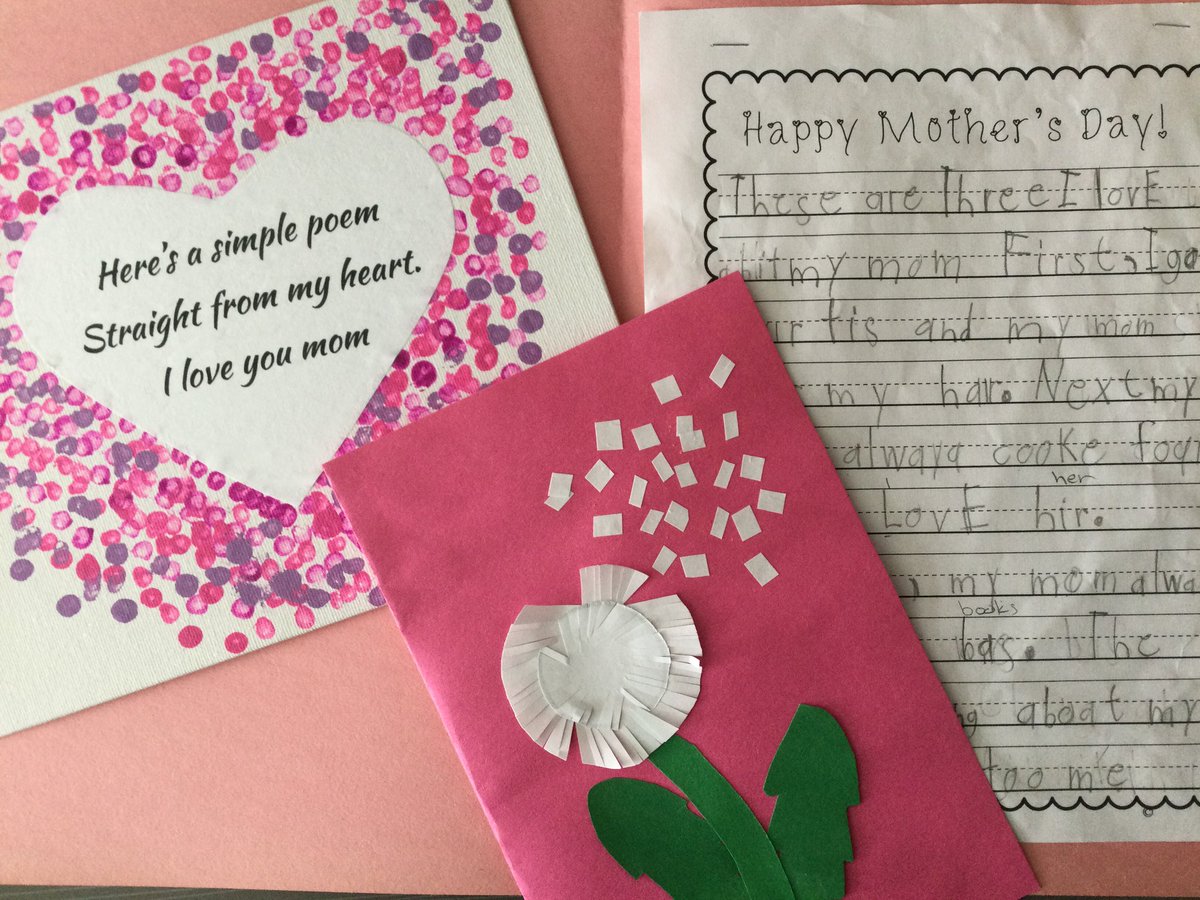 Here's a simple poem
Straight from my heart.
I love you mom
Happy Mother's Day!
These are Three I lovE
abit my mom First, I go
tis and my mom
my har. Next my
alwaya cooke
her
LovE hir.
my mom alwa
books
bas. The
aboat my
too me